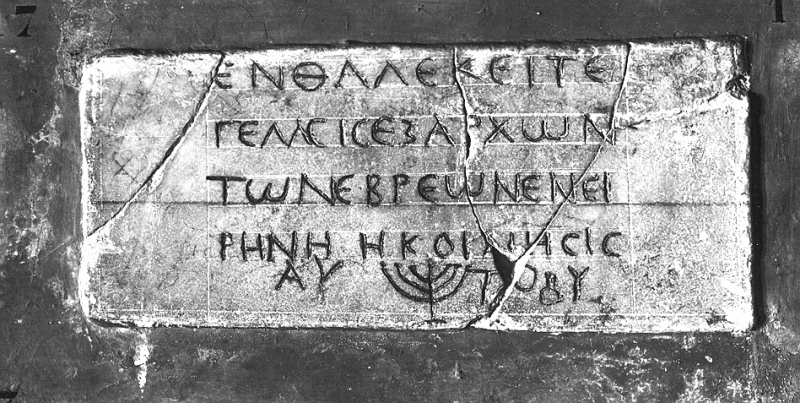 7 1
ΕΝΘΑΔΕΚΕΙΤΕ
ΓΕΛΑCΙCΕΞΑΡΧωΝ
ΤωΝΕΒΡΕωΝΕΝΕΙ
ΡΗΝΗ Η ΚΟΙΜΗCΙC
ΑΥ ΤΟΥ